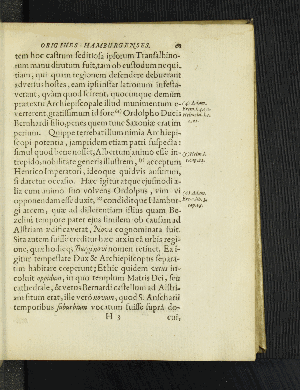 ORIGINES HAMBURGENSES. 61
tem hoc castrum seditiosa ipsorum Transalbino-
rum manu dirutum fuit, tam ob custodum nequi-
tiam, qui quam regionem defendere debuerant
adversus hostes, eam ipsi instar latronum infesta-
verant, quàm quod scirent, quocunque demum
prætextu Archiepiscopale illud munimentum e-
verterent, gratissimum id fore Ordolpho Ducis
Bernhardi filio, penes quem tunc Saxoniæ erat im-
perium. Quippe terrebat illum nimia Archiepi-
scopi potentia, jampridem etiam patri suspecta:
simul quod he nosset, Albertum animo esse in-
trepido, nobilitate generis illustrem, acceptum
Henrico Imperatori, ideoque quidvis ausurum,
si daretur occasio. Hæc igitur atque ejusmodi a-
lia cum animo suo volvens Ordolphus, vim vi
opponendam esse duxit, conditque Hambur-
gi arcem, quæ ad differentiam istius quam Be-
zelini tempore pater ejus similem ob causam ad
Alstriam ædificaverat, Nova cognominata fuit.
Sita autem fuisse creditur hæc arx in eâ urbis regi-
one, quæ hodieq; nomen retinet. Ex i-
gitur tempestate Dux & Archiepiscopus separa-
tum habitare cœperunt; Ethic quidem vetus in-
coluit oppidum, in quo templum Matris Dei, seu
cathedrale, & vetus Bernardi castellum ad Alstri-
am situm erat, ille verò novum, quod S. Anscharii
temporibus suburbium vocatum fuisse suprà do-
H 3 cui,